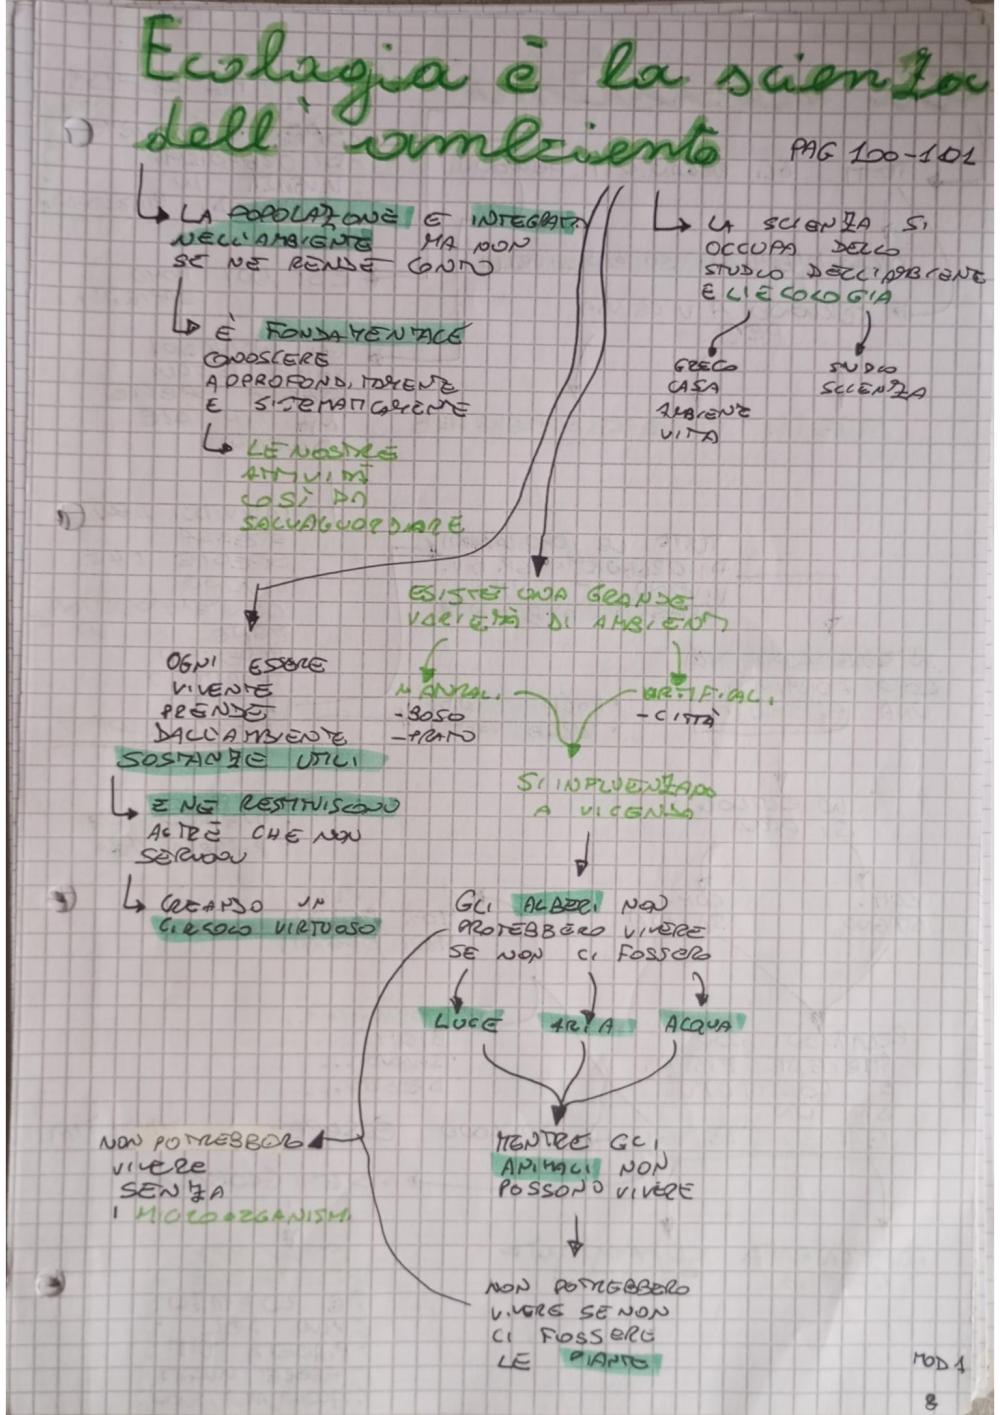 Ecologia è la scienza
dell'ambiente
PAG 100-101
LA POPOLAZIONE E INTEGRATA
NELL'AMBIENTE MA NON
SE NE RENDE CONTO
È FONDAMENTALE
CONOSCERE
APPROFONDITAMENTE
E SISTEMATICAMENTE
LE NOSTRE
ATTIVITÀ
COSÌ DA
SALVAGUARDARE
LA SCIENZA SI
OCCUPA DELLO
STUDIO DELL'AMBIENTE
E L'ECOLOGIA
GRECO
CASA
AMBIENTE
VITA
STUDIO
SCIENZA
ESISTE UNA GRANDE
VARIETÀ DI AMBIENTI
NATURALI
-BOSO
-PRATO
ARTIFICIALI
-CITTÀ
SI INFLUENZANO
A VICENDA
OGNI ESSERE
VIVENTE
PRENDE
DALL'AMBIENTE
SOSTANZE UTILI
E NE RESTITUISCONO
ALTRE CHE NON
SERVONO
CREANDO UN
CIRCOLO VIRTUOSO
GLI ALBERI NON
PROTEBBERO VIVERE
SE NON CI FOSSERO
LUCE ARIA ACQUA
MENTRE GLI
ANIMALI NON
POSSONO VIVERE
NON POTREBBERO
VIVERE
SENZA
I MICROORGANISMI
NON POTREBBERO
VIVERE SE NON
CI FOSSERO
LE PIANTE
MOD 1
8